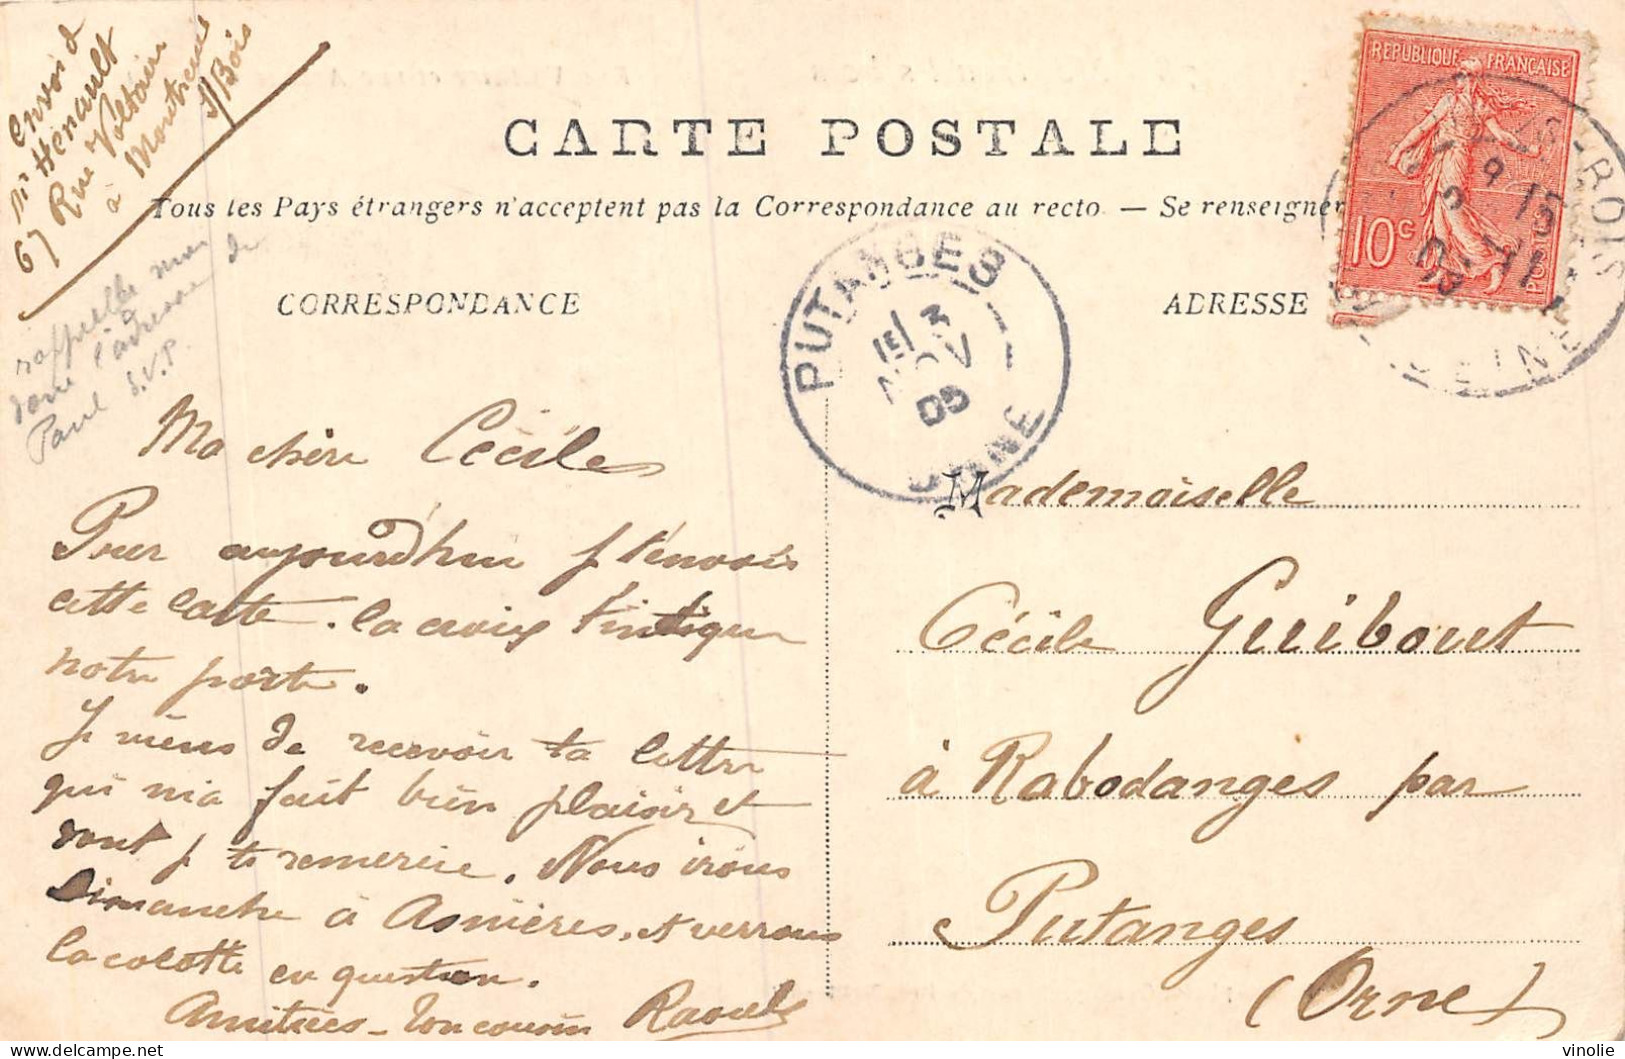 Envoi d
Mr Hénault
67 Rue Voltaire
à Montreuil
s/Bois
rappelle moi
donc l'adresse de
Paul S.V.P.
CARTE POSTALE
Tous les Pays étrangers n'acceptent pas la Correspondance au recto. — Se renseigner
CORRESPONDANCE
ADRESSE
REPUBLIQUE FRANÇAISE
10c
POSTES
PUTANGES
3
NOV
05
ORNE
BOIS
SEINE
Ma chère Cécile
Pour aujourd'hui je t'envoie
cette carte. la croix t'indique
notre porte.
Je viens de recevoir ta lettre
qui m'a fait bien plaisir et
dont je te remercie. Nous irons
Dimanche à Asnières, et verrons
la colotte en question.
Amitiés - Ton cousin Raoul
Mademoiselle
Cécile Guibout
à Rabodanges par
Putanges
(Orne)
vinolie